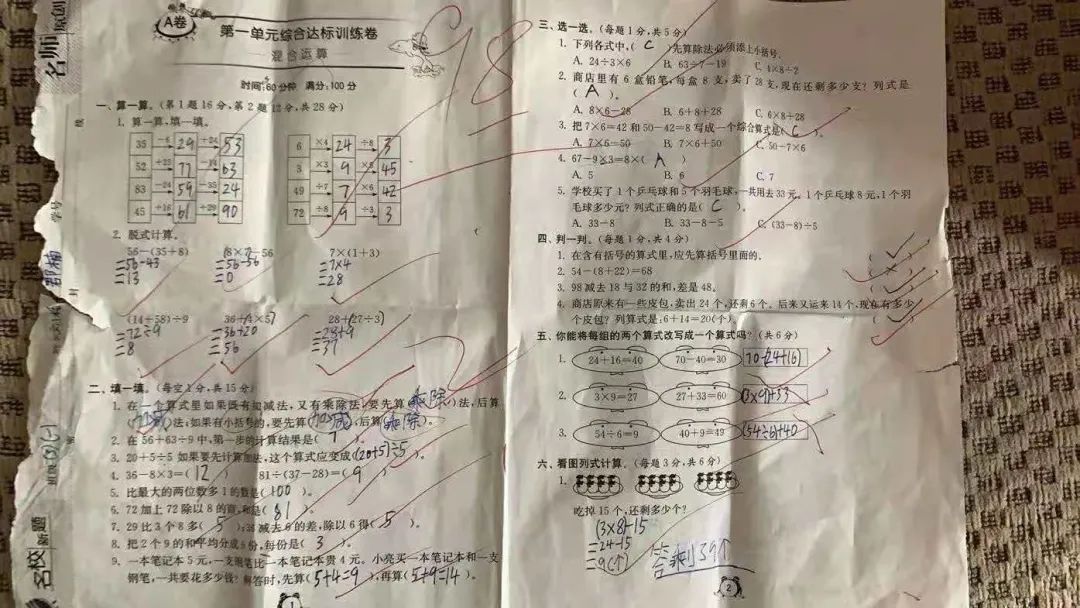 名师
A卷
第一单元综合达标训练卷
混合运算
时间:60分钟 满分:100分
98
一、算一算。(第1题16分,第2题12分,共28分)
1. 算一算,填一填。
35 −6 29 +24 53
52 +25 77 −14 63
83 −24 59 −35 24
45 +16 61 +29 90
6 ×4 24 ÷8 3
3 ×3 9 ×5 45
49 ÷7 7 ×6 42
72 ÷8 9 ÷3 3
2. 脱式计算。
56−(35+8) 8×7−56 7×(1+3)
=56−43 =56−56 =7×4
=13 =0 =28
(14+58)÷9 36+(4×5) 28+(27÷3)
=72÷9 =36+20 =28+9
=8 =56 =37
二、填一填。(每空1分,共15分)
1. 在一个算式里如果既有加减法,又有乘除法,要先算(乘除)法,后算
(加减)法;如果有小括号的,要先算(加减),后算(乘除)。
2. 在56+63÷9中,第一步的计算结果是( 7 )。
3. 20+5÷5如果要先计算加法,这个算式应变成(20+5)÷5。
4. 36−8×3=( 12 ) 81÷(37−28)=( 9 )
5. 比最大的两位数多1的数是(100)。
6. 72加上72除以8的商,和是( 81 )。
7. 29比3个8多( 5 );减去6的差,除以6得( 5 )。
8. 把2个9的和平均分成6份,每份是( 3 )。
9. 一本笔记本5元,一支钢笔比一本笔记本贵4元。小亮买一本笔记本和一支
钢笔,一共要花多少钱?解答时,先算(5+4=9),再算(5+9=14)。
1
学号
班级
名校
新题
三、选一选。(每题1分,共5分)
1. 下列各式中,( C )先算除法必须添上小括号。
A. 24÷3×6 B. 63÷7−19 C. 4×8÷2
2. 商店里有6盒铅笔,每盒8支,卖了28支,现在还剩多少支?列式是
( A )。
A. 8×6−28 B. 6+8+28 C. 6×8+28
3. 把7×6=42和50−42=8写成一个综合算式是( C )。
A. 7×6=50 B. 7×6+50 C. 50−7×6
4. 67−9×3=8×( A )
A. 5 B. 6 C. 7
5. 学校买了1个乒乓球和5个羽毛球,一共用去33元,1个乒乓球8元,1个羽
毛球多少元?列式正确的是( C )。
A. 33−8 B. 33−8−5 C. (33−8)÷5
四、判一判。(每题1分,共4分)
1. 在含有括号的算式里,应先算括号里面的。
2. 54−(8+22)=68
3. 98减去18与32的和,差是48。
4. 商店原来有一些皮包,卖出24个,还剩6个。后来又运来14个,现在有多少
个皮包?列算式是:6+14=20(个)
五、你能将每组的两个算式改写成一个算式吗?(共6分)
1. 24+16=40 70−40=30 70−(24+16)
2. 3×9=27 27+33=60 (3×9)+33
3. 54÷6=9 40+9=49 (54÷6)+40
六、看图列式计算。(每题3分,共6分)
1.
吃掉15个,还剩多少个?
(3×8)−15
=24−15
=9(个)
答:剩9个
2